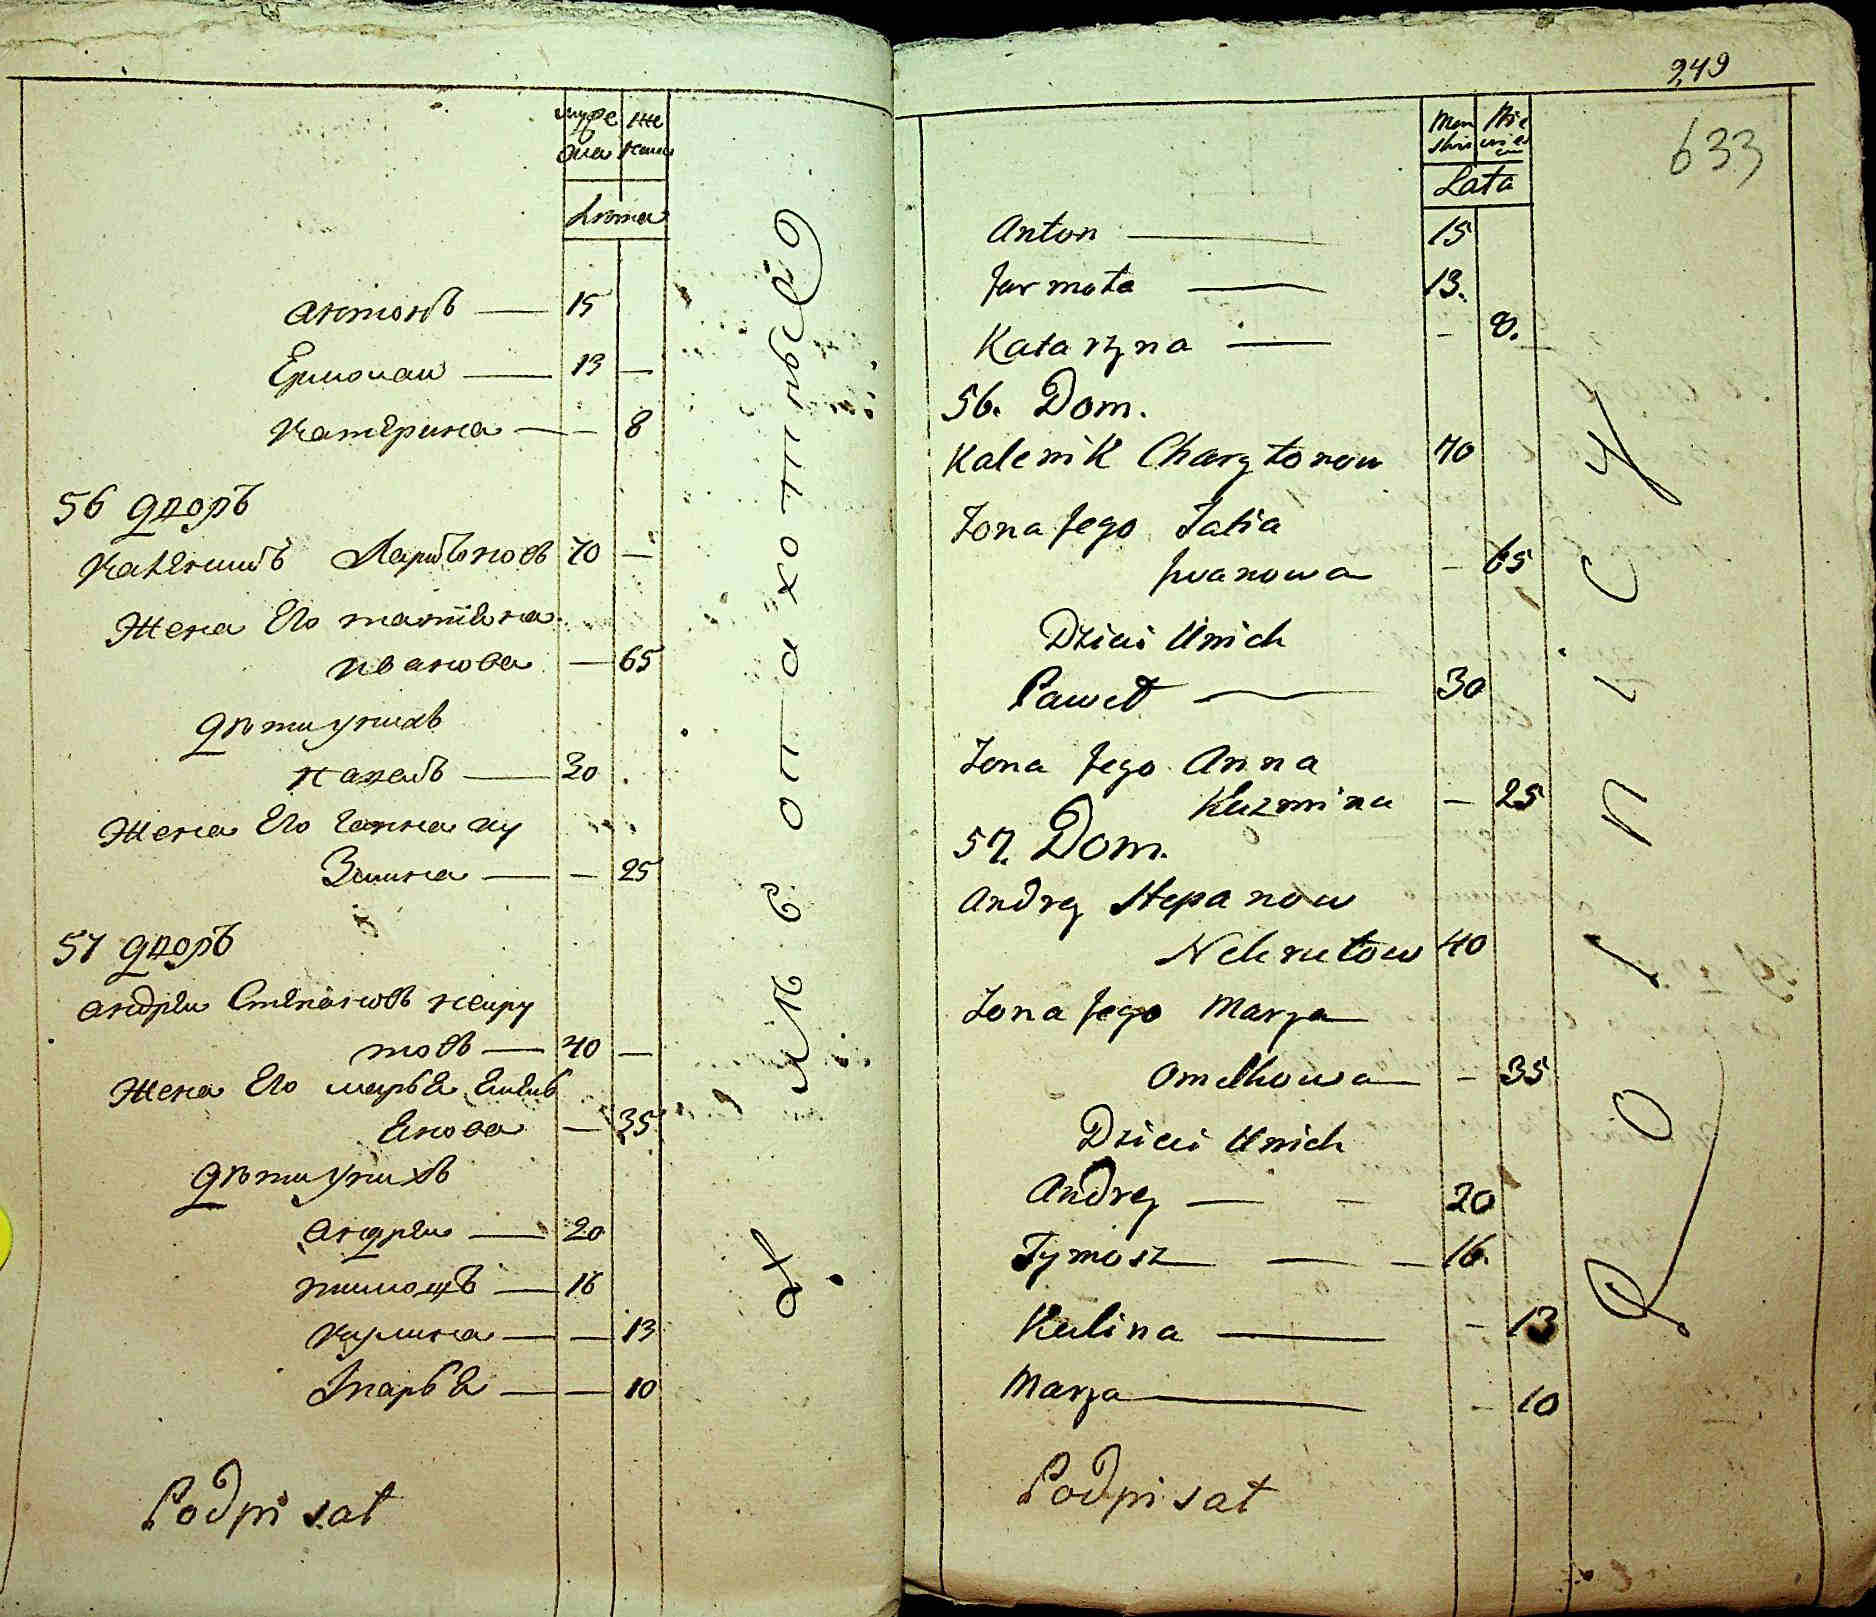 муже ска
Же нска
Лѣта
антонъ — 15
Ермолаи — 13 —
Катерина — — 8
56 дворъ
Каленикъ Харитоновъ 70 —
Жена Его татиана
иванова — 65
дѣти у нихъ
павелъ — 30
Жена Его ганна ку
Змина — — 25
57 дворъ
андреи Степановъ некру
товъ — 40 —
Жена Его марья Емель
Янова — 35
дѣти у нихъ
андреи — 20
тимошъ — 16
кулина — — 13
марья — — 10
Podpisał
249
633
Men skiei
Nie wies cia
Lata
Anton — 15
Jarmoła — 13.
Katarzyna — - 8.
56. Dom.
Kalenik Charytonow 70
Żona Jego Tatia
Iwanowa - 65
Dzieci U nich
Paweł — 30
Żona Jego Anna
Kuzmina — 25
57. Dom.
Andrey Stepanow
Nekrutow 40
Żona Jego Marya
Omelkowa - 35
Dzieci U nich
Andrey — - 20
Tymosz — — 16.
Kulina — - 13
Marya — - 10
Podpisał
Rolnicy